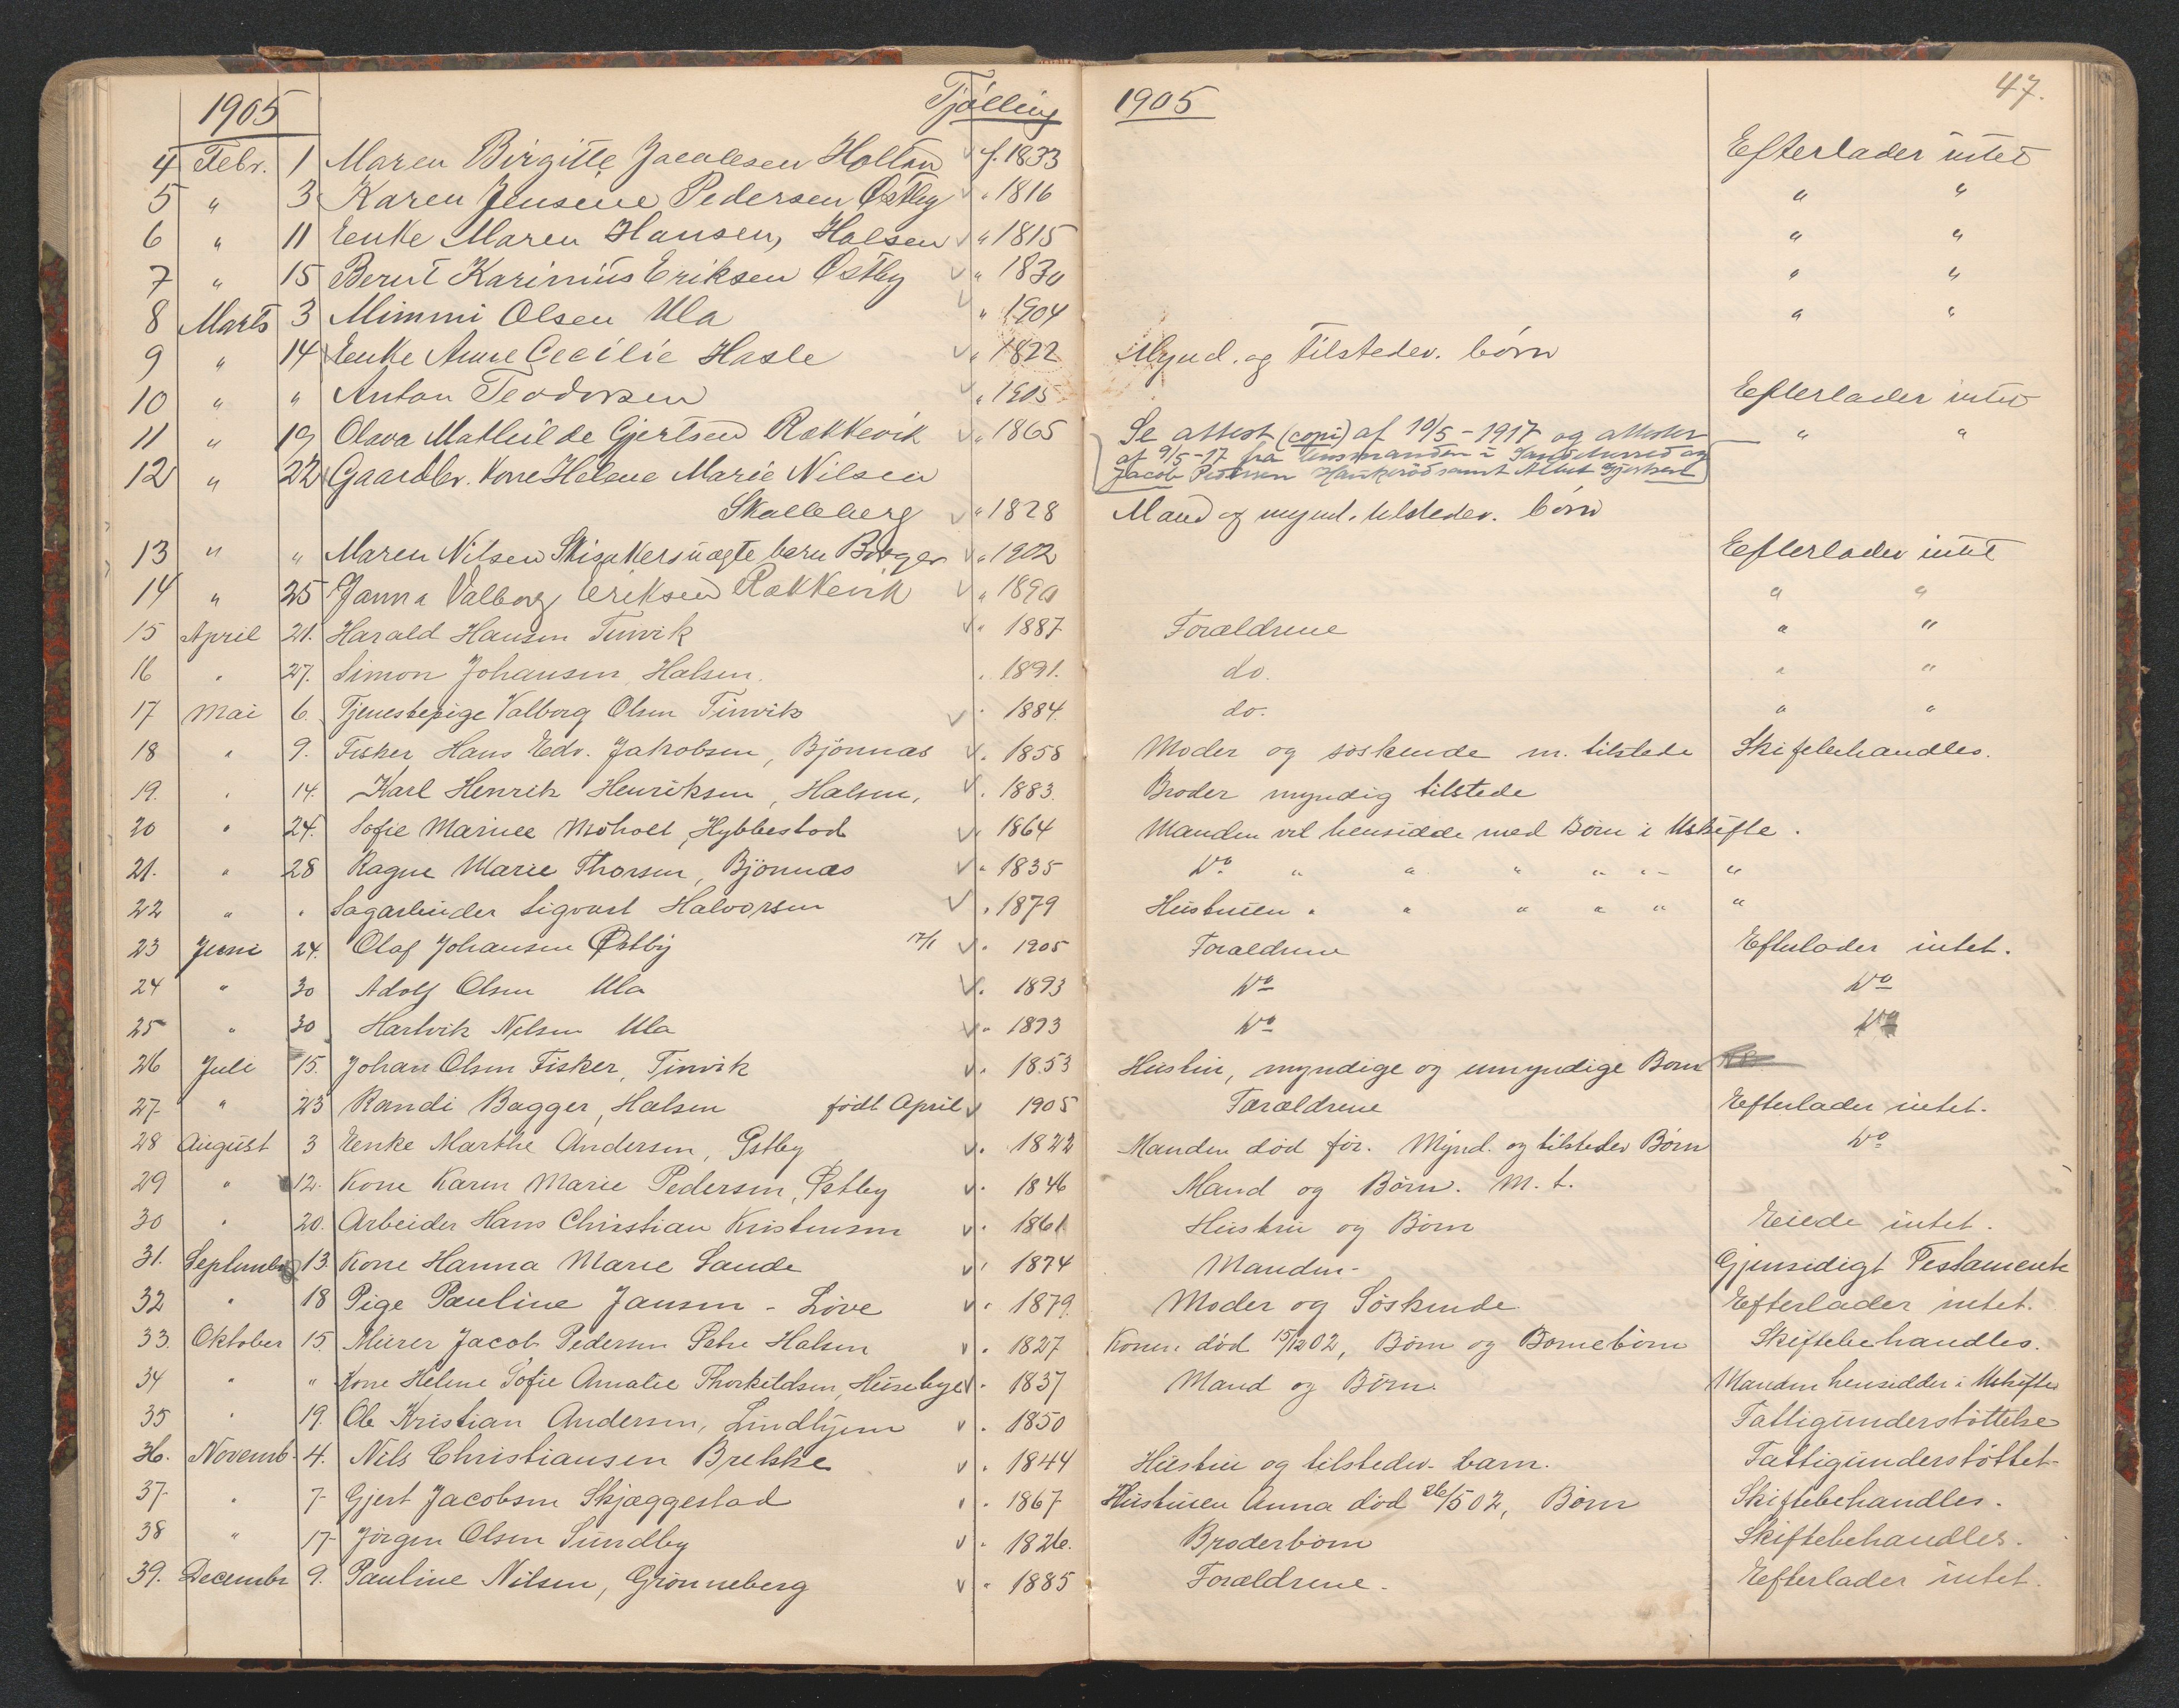 1905 Tjølling 1905 47.
4 Febr. 1 Maren Birgitte Jacobsen Holtan f. 1833 Efterlader intet
5 " 3 Karen Jensine Pedersen Østby " 1816 " "
6 " 11 Enke Maren Hansen, Halsen " 1815 " "
7 " 15 Bernt Karinius Eriksen Østby " 1830 " "
8 Marts 3 Mimmi Olsen Ula " 1904 " "
9 " 14 Enke Anne Cecilie Hasle " 1822 Mynd. og tilstedev. børn
10 " " Anton Teodorsen " 1905 Efterlader intet
11 " 19 Olava Mathilde Gjertsen Rækkevik " 1865 Se attest (copi) af 10/5-1917 og attester " "
af 9/5-17 fra lensmanden i Sandeherred og
12 " 22 Gaardbr. Kone Helene Marie Nilsen Jacob Pedersen Haukerød samt Gjertsen
Skalleberg " 1828 Mand og mynd. tilstedev. børn
13 " " Maren Nilsen Skisakers uægte barn Borger " 1902 Efterlader intet
14 " 25 Janna Valborg Eriksen Rækkevik " 1890 " "
15 April 21. Harald Hansen Tinvik " 1887 Forældrene " "
16 " 27. Simon Johansen, Halsen. " 1891. do. " "
17 Mai 6. Tjenestepige Valborg Olsen Tinvik " 1884. do. " "
18 " 9. Fisker Hans Edv. Jakobsen, Bjønnæs " 1858 Moder og søskende m. tilstede Skiftebehandles.
19. " 14. Karl Henrik Henriksen, Halsen, " 1883. Broder myndig tilstede
20 " 24. Sofie Marinee Moholt, Hybbestad " 1864 Manden vil hensidde med Børn i Uskifte.
21. " 28 Ragne Marie Thorsen, Bjønnæs " 1835 Do " " " " " - "
22 " " Sagarbeider Sigvart Halvorsen " 1879 Hustruen " " " " " "
23 Juni 24. Olaf Johansen Østby 17/1 " 1905 Forældrene Efterlader intet.
24 " 30 Adolf Olsen Ula " 1893 Do Do
25 " 30 Hartvik Nilsen Ula " 1893 Do Do
26 Juli 15. Johan Olsen Fisker, Tinvik " 1853 Hustru, myndige og umyndige Børn
27 " 23 Randi Bagger, Halsen født April 1905 Forældrene Efterlader intet.
28 August 3 Enke Marthe Andersen, Østby " 1822 Manden død før. Mynd. og tilstedev Børn Do
29 " 12. Kone Karen Marie Pedersen, Østby " 1846 Mand og Børn. M. t.
30 " 20. Arbeider Hans Christian Kristensen " 1861 Hustru og Børn Eiede intet.
31. September 13. Kone Hanna Marie Sande " 1874 Manden- Gjensidigt Testamente
32 " 18 Pige Pauline Jansen - Løve " 1879. Moder og Søskende Efterlader intet.
33. Oktober 15. Murer Jacob Pedersen Østre Halsen " 1827 Konen død 15/12 02, Børn og Børnebørn Skiftebehandles.
34 " " Kone Helene Sofie Amalie Thorkildsen, Husebye " 1837 Mand og Børn. Manden hensidder i Uskifte
35 " 19. Ole Kristian Andersen, Lindhjem " 1850 Fattigunderstøttelse
36. Novemb. 4. Nils Christiansen Brekke " 1844 Hustru og tilstedev. barn. Fattigunderstøttet-
37- " 7- Gjert Jacobsen Skjæggestad " 1867 Hustruen Anna død 26/5 02, Børn Skiftebehandles.
38 " 17- Jørgen Olsen Sundby " 1826. Broderbørn Skiftebehandles.
39. December 9. Pauline Nilsen, Grønneberg " 1885 Forældrene. Efterlader intet.